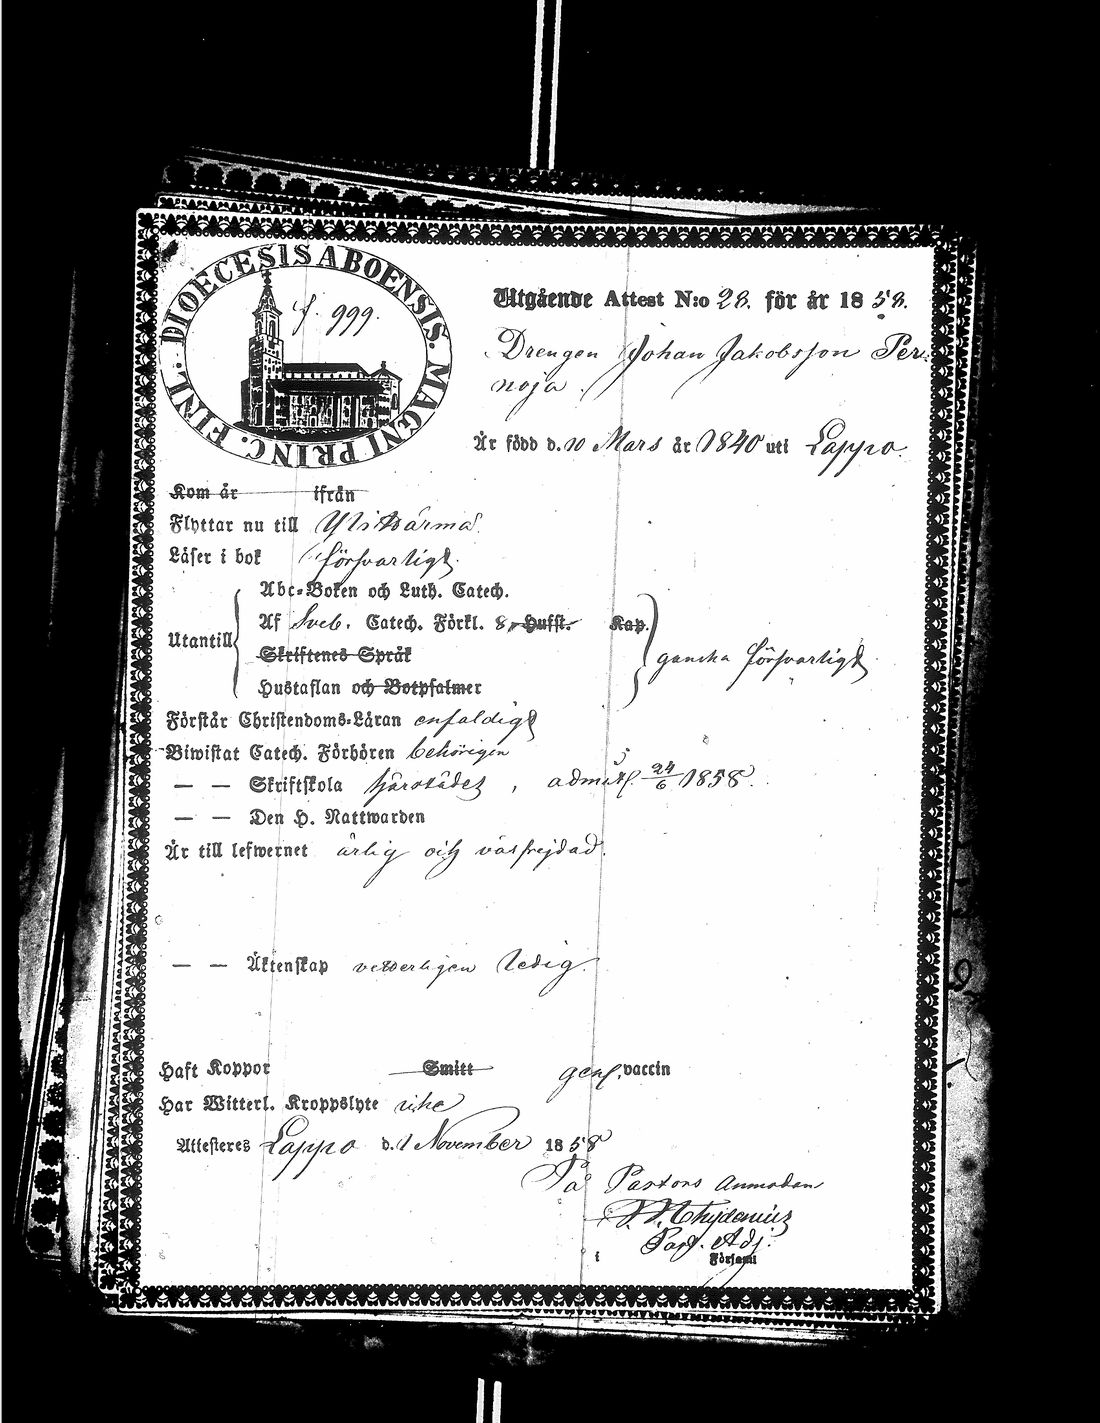 DIOECESIS ABOENSIS. MAGNI PRINC. FINL.
f. 999.
Utgående Attest N:o 28. för år 1858.
Drengen Johan Jakobsson Per
noja.
Är född d. 10 Mars år 1840 uti Lappo.
Kom år ifrån
Flyttar nu till Ylihärmä
Läser i bok försvarligt.
Abc-Boken och Luth. Catech.
Utantill Af Sveb. Catech. Förkl. 8, Hufst. Kap.
Skriftenes Språk
ganska försvarligt
Hustaflan och Botpsalmer
Förstår Christendoms-Läran enfaldigt
Biwistat Catech. Förhören behörigen
— — Skriftskola härstädes, 24/6 1858.
— — Den H. Nattwarden
Är till lefwernet ärlig och välfrejdad.
— — Äktenskap veterligen ledig.
Haft Koppor Smitt vaccin
Har Witterl. Kroppslyte icke
Attesteres Lappo d. 1 November 1858
På Pastors anmodan
Chydenius
Past. Adj.
i Församl